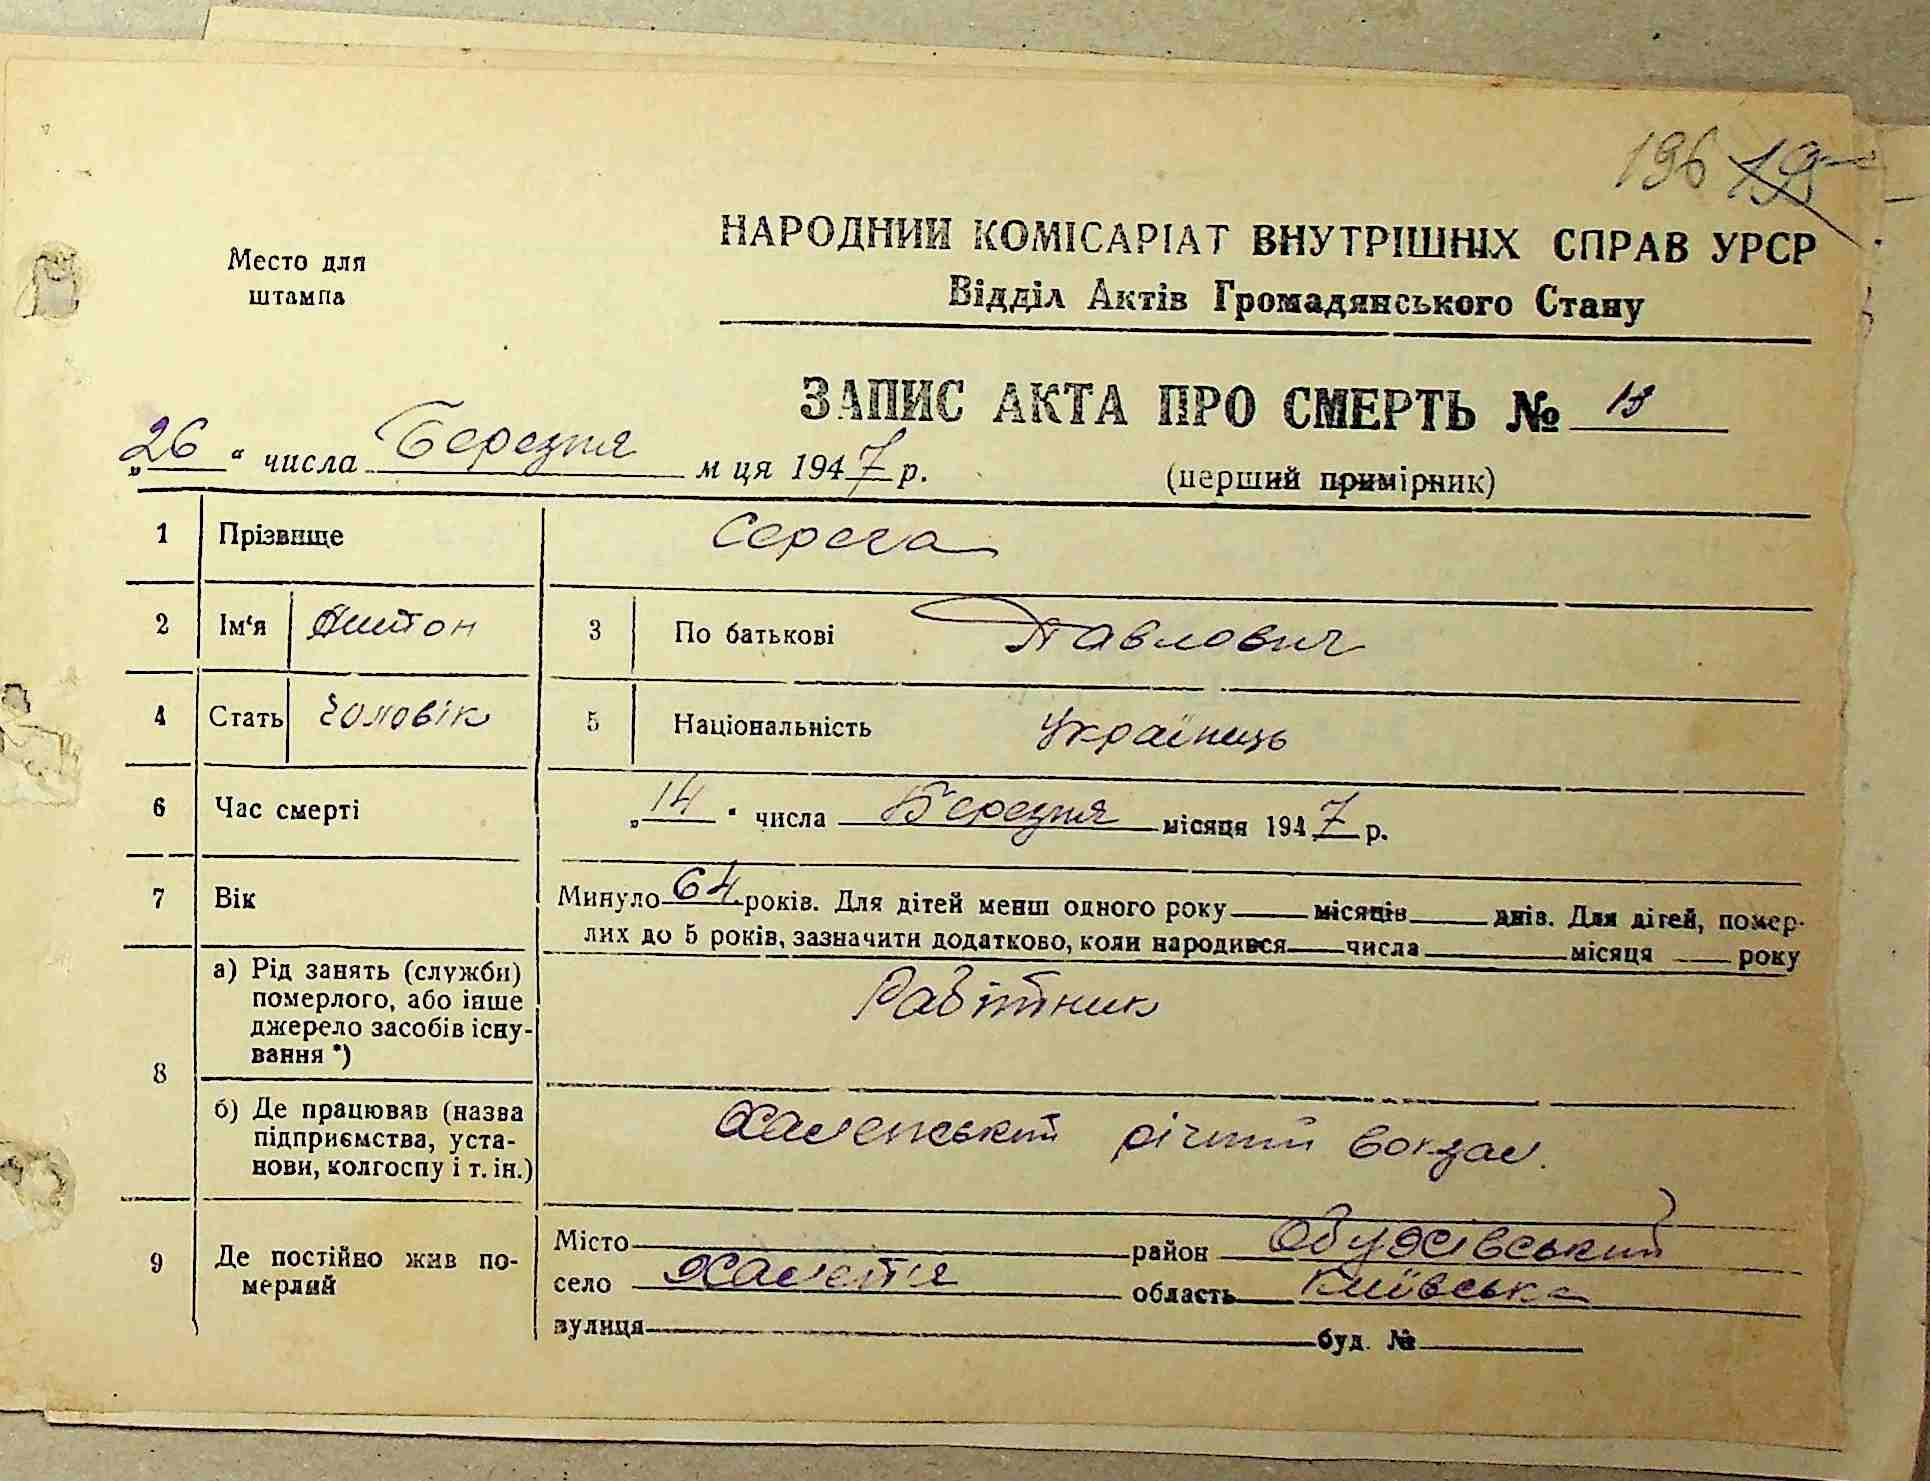 196 195
Место для
штампа
НАРОДНИЙ КОМІСАРІАТ ВНУТРІШНІХ СПРАВ УРСР
Відділ Актів Громадянського Стану
ЗАПИС АКТА ПРО СМЕРТЬ № 13
„26“ числа Березня м ця 1947 р.
(перший примірник)
1 Прізвище Серега
2 Ім‘я Антон 3 По батькові Павлович
4 Стать Чоловік 5 Національність Українець
6 Час смерті „14“ числа Березня місяця 1947 р.
7 Вік Минуло 64 років. Для дітей менш одного року місяців днів. Для дітей, помер-
лих до 5 років, зазначити додатково, коли народився числа місяця року
8 а) Рід занять (служби)
померлого, або інше
джерело засобів існу-
вання *)
Рабітник
б) Де працював (назва
підприємства, уста-
нови, колгоспу і т. ін.)
Халепський річний вокзал.
9 Де постійно жив по-
мерлий
Місто район Обухівський
село Халепя область Київська
вулиця буд. №